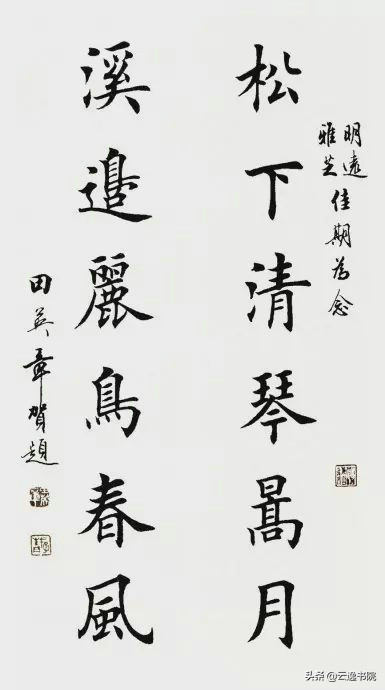 明遠
雅芝
佳期為念
松下清琴暠月
溪邉麗鳥春風
田英章賀題
头条@云逸书院